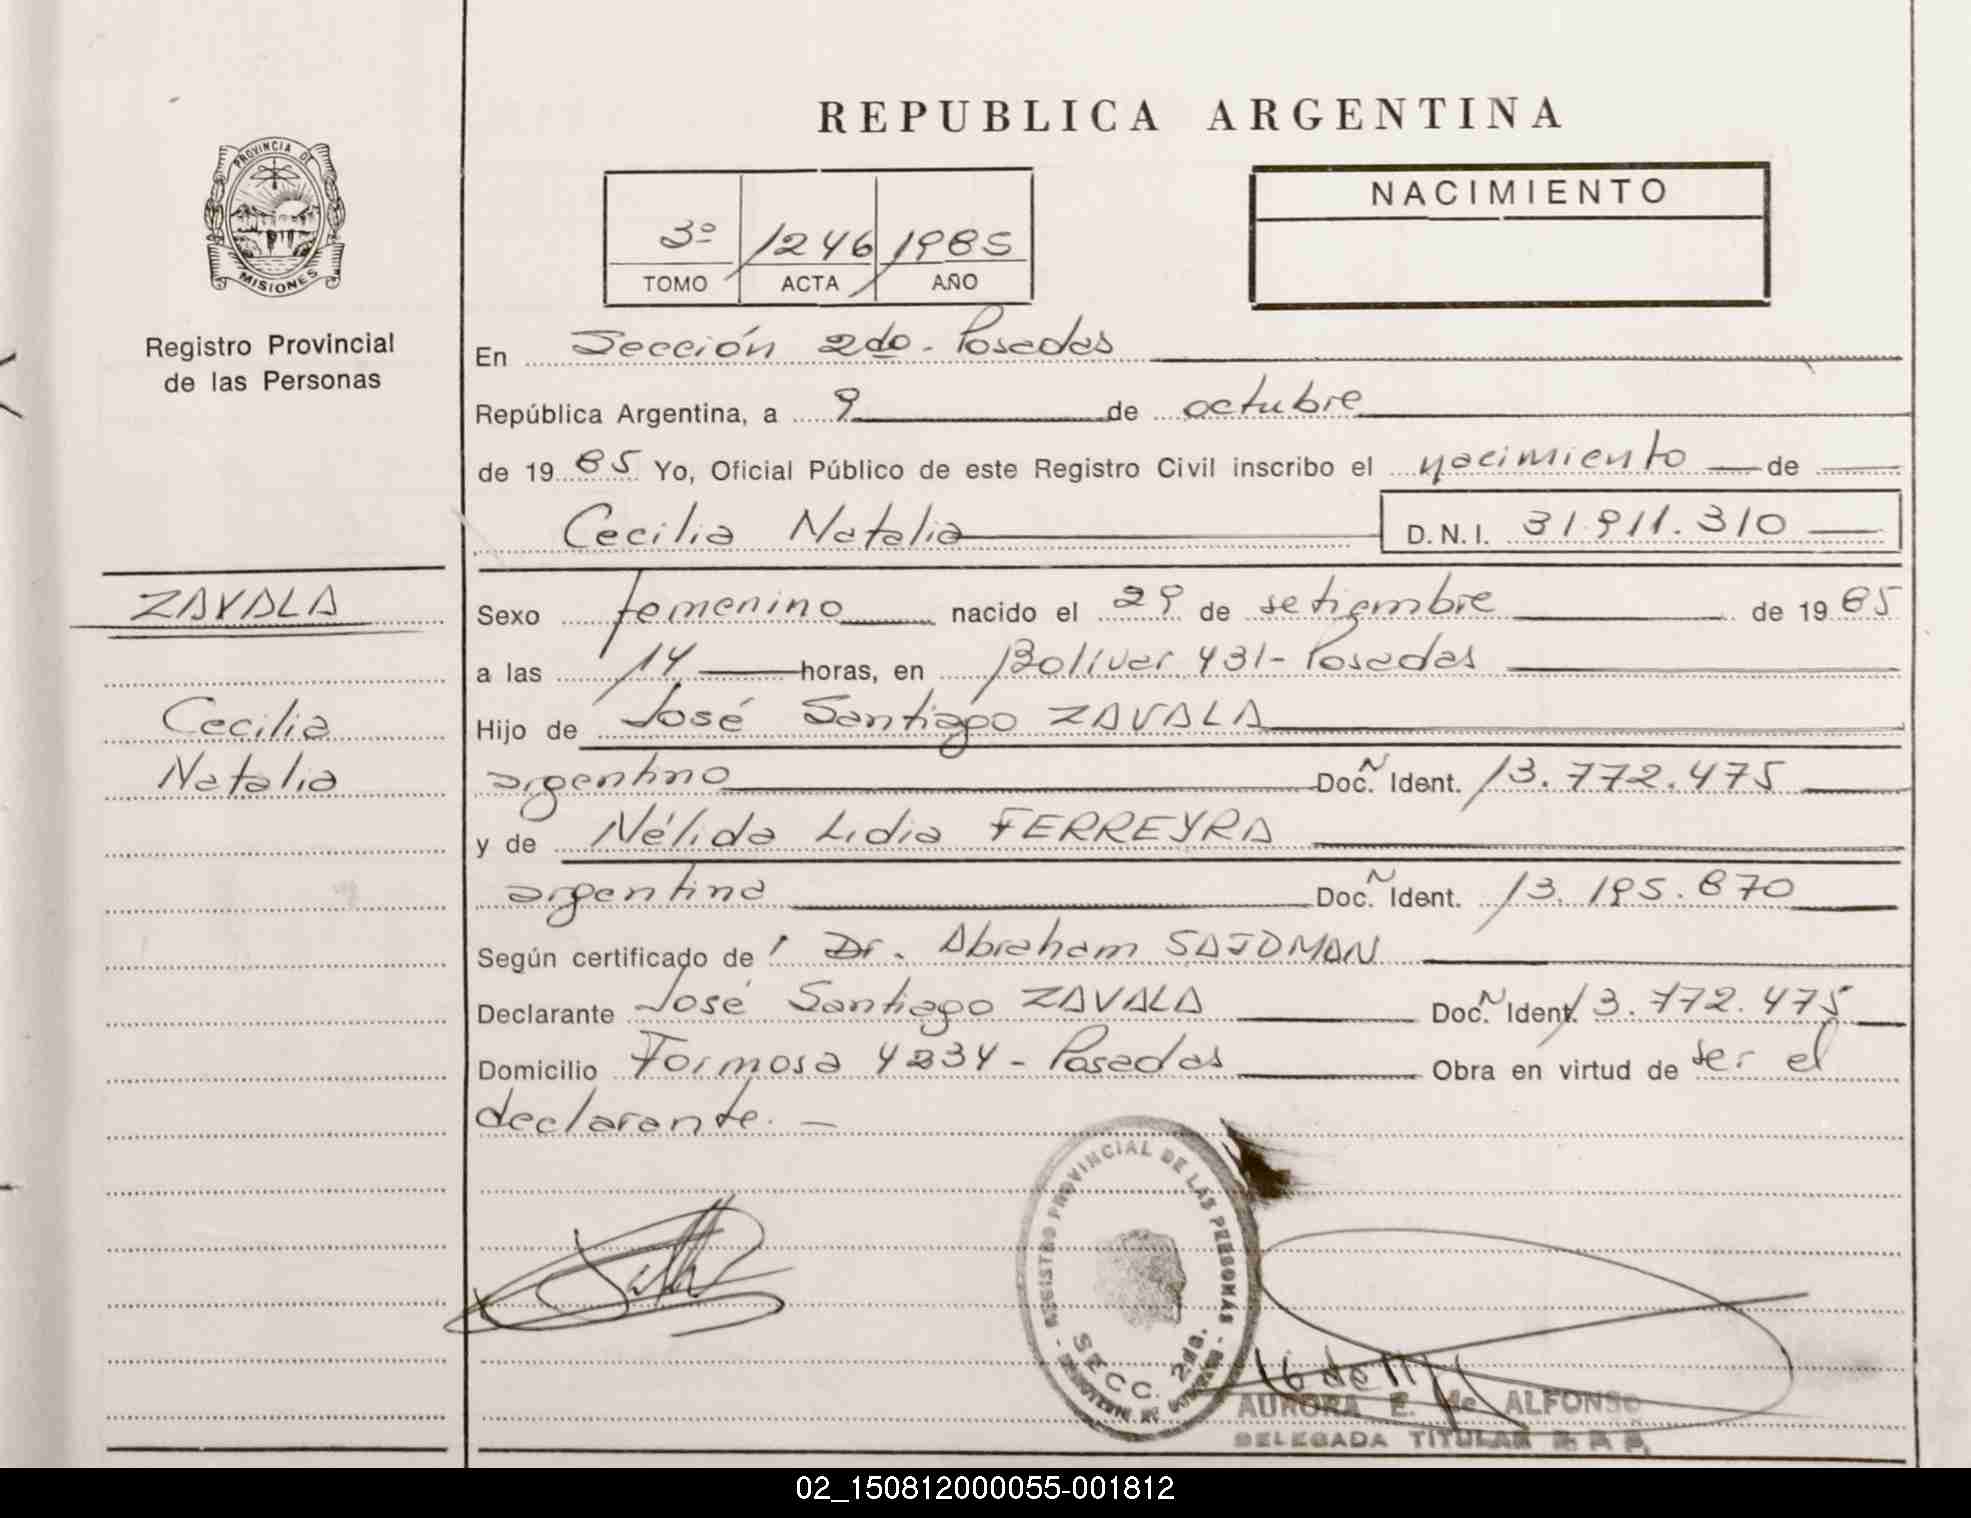 REPUBLICA ARGENTINA
PROVINCIA DE
MISIONES
Registro Provincial
de las Personas
NACIMIENTO
3º 1246 1985
TOMO ACTA AÑO
En Sección 2do - Posadas
República Argentina, a 9 de octubre
de 1985 Yo, Oficial Público de este Registro Civil inscribo el nacimiento de
Cecilia Natalia D.N.I. 31.911.310
ZAVALA
Cecilia
Natalia
Sexo femenino nacido el 29 de setiembre de 1985
a las 14 horas, en Bolívar 431 - Posadas
Hijo de José Santiago ZAVALA
argentino Doc. Ident. 13.772.475
y de Nélida Lidia FERREYRA
argentina Doc. Ident. 13.195.870
Según certificado de Dr. Abraham SAJDMAN
Declarante José Santiago ZAVALA Doc. Ident. 13.772.475
Domicilio Formosa 4234 - Posadas Obra en virtud de ser el
declarante. -
REGISTRO PROVINCIAL DE LAS PERSONAS
SECC. 2da.
AURORA E. de ALFONSO
DELEGADA TITULAR R.P.P.
02_150812000055-001812